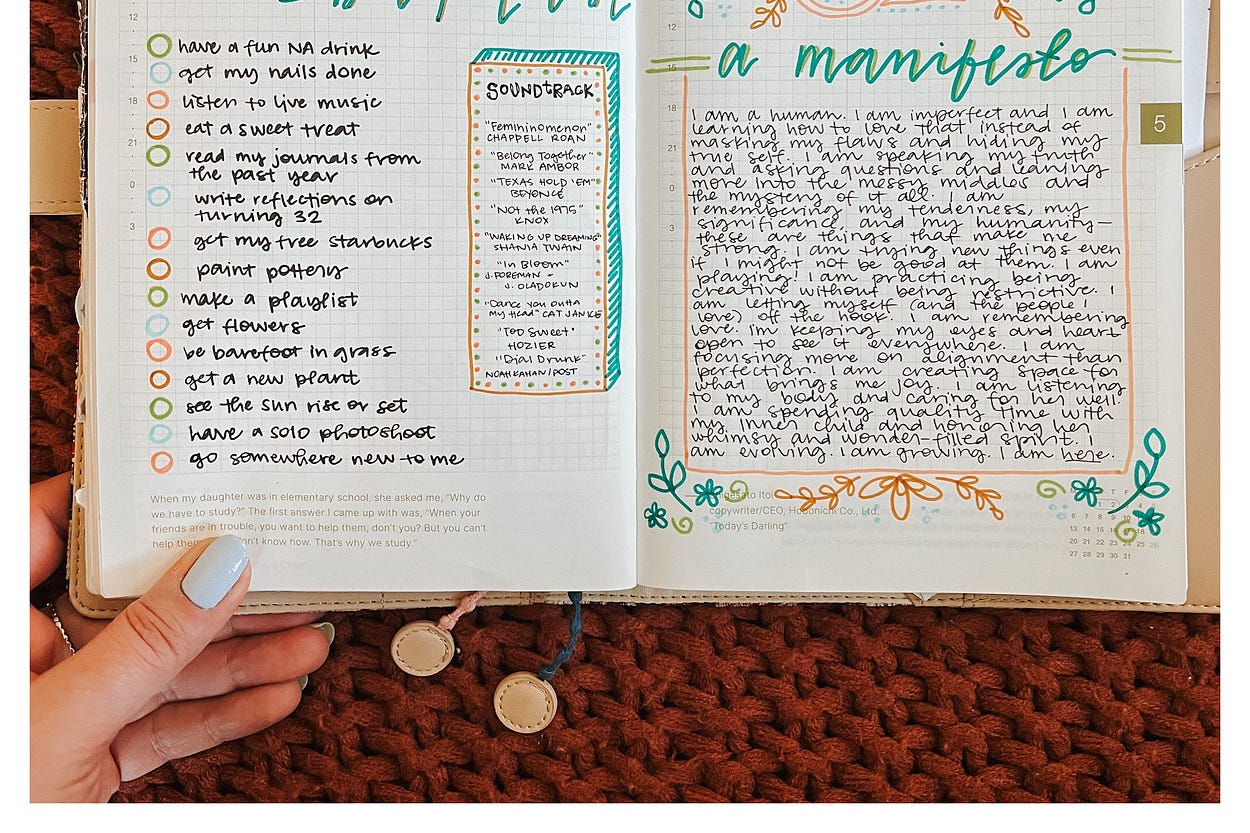 12
have a fun NA drink
get my nails done
15
listen to live music
18
eat a sweet treat
21
read my journals from
the past year
0
write reflections on
turning 32
3
get my free Starbucks
paint pottery
make a playlist
get flowers
be barefoot in grass
get a new plant
see the sun rise or set
have a solo photoshoot
go somewhere new to me
SOUNDtRACK
"Femininomenon"
CHAPPELL ROAN
"Belong Together"
MARK AMBOR
"TEXAS HOLD 'EM"
BEYONCÉ
"Not the 1975"
KNOX
"WAKING UP DREAMING"
SHANIA TWAIN
"In Bloom"
J. FOREMAN +
J. OLADOKUN
"Dance you outta
My Head" CAT JANICE
"Too Sweet"
HOZIER
"Dial Drunk"
NOAH KAHAN/POST
When my daughter was in elementary school, she asked me, "Why do
we have to study?" The first answer I came up with was, "When your
friends are in trouble, you want to help them, don't you? But you can't
help them don't know how. That's why we study."
12
a manifesto
15
18
21
0
3
I am a human. I am imperfect and I am
learning how to love that instead of
masking my flaws and hiding my
true self. I am speaking my truth
and asking questions and leaning
more into the messy middles and
the mystery of it all. I am
remembering my tenderness, my
significance, and my humanity—
these are things that make me
strong. I am trying new things even
if I might not be good at them. I am
playing. I am practicing being
creative without being restrictive. I
am letting myself (and the people I
love) off the hook. I am remembering
love. I'm keeping my eyes and heart
open to see it everywhere. I am
focusing more on alignment than
perfection. I am creating space for
what brings me joy. I am listening
to my body and caring for her well.
I am spending quality time with
my inner child and honoring her
whimsy and wonder-filled spirit. I
am evolving. I am growing. I am here.
5
Itoi
copywriter/CEO, Hobonichi Co., Ltd.
"Today's Darling"
M T F
1 2
6 7 8 9 10
13 14 15 16 17
20 21 22 23 24 25 26
27 28 29 30 31